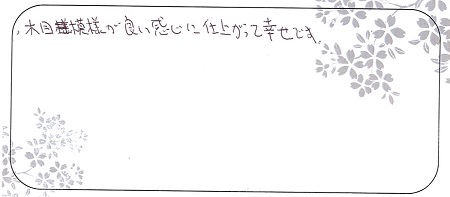 木目模様が良い感じに仕上がって幸せです。